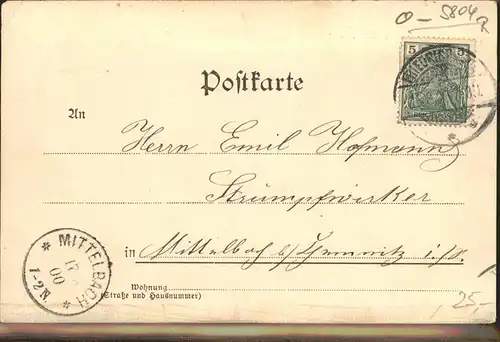 O – 5804
5
Postkarte
An
Herrn Emil Hofmann
Strumpfwirker
in Mittelbach b/Chemnitz i./S.
* MITTELBACH *
17
00
1-2 N.
Wohnung
(Straße und Hausnummer)
25,-